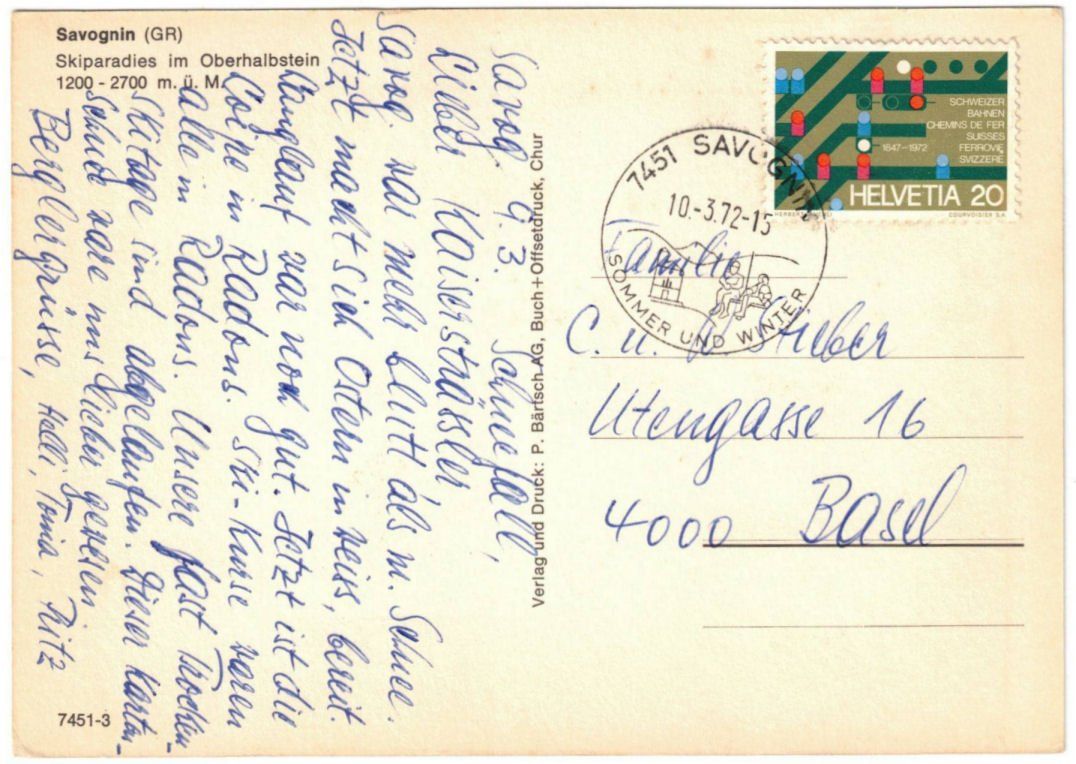 Savognin (GR)
Skiparadies im Oberhalbstein
1200 - 2700 m. ü. M.
Savog 9.3. Schneefall,
Kaisersträssler,
Savog. war mehr als m. Schnee.
Jetzt macht sich Ostern in weiss, bereit.
Langlauf war noch gut. Jetzt ist die
Loipe in Radons. Ski-Kurse waren
alle in Radons. Unsere fast Trocken-
Skitage sind abgelaufen. Dieser Karten-
Schnee wäre uns lieber gewesen
Berglergrüsse, Tonia, Fritz
7451-3
Verlag und Druck: P. Bärtsch AG, Buch + Offsetdruck, Chur
SCHWEIZER
BAHNEN
CHEMINS DE FER
SUISSES
1647-1972 FERROVIE
SVIZZERE
HELVETIA 20
COURVOISIER S.A.
7451 SAVOGNIN
10.-3.72-15
SOMMER UND WINTER
Familie
C. u. Stieber
Utengasse 16
4000 Basel